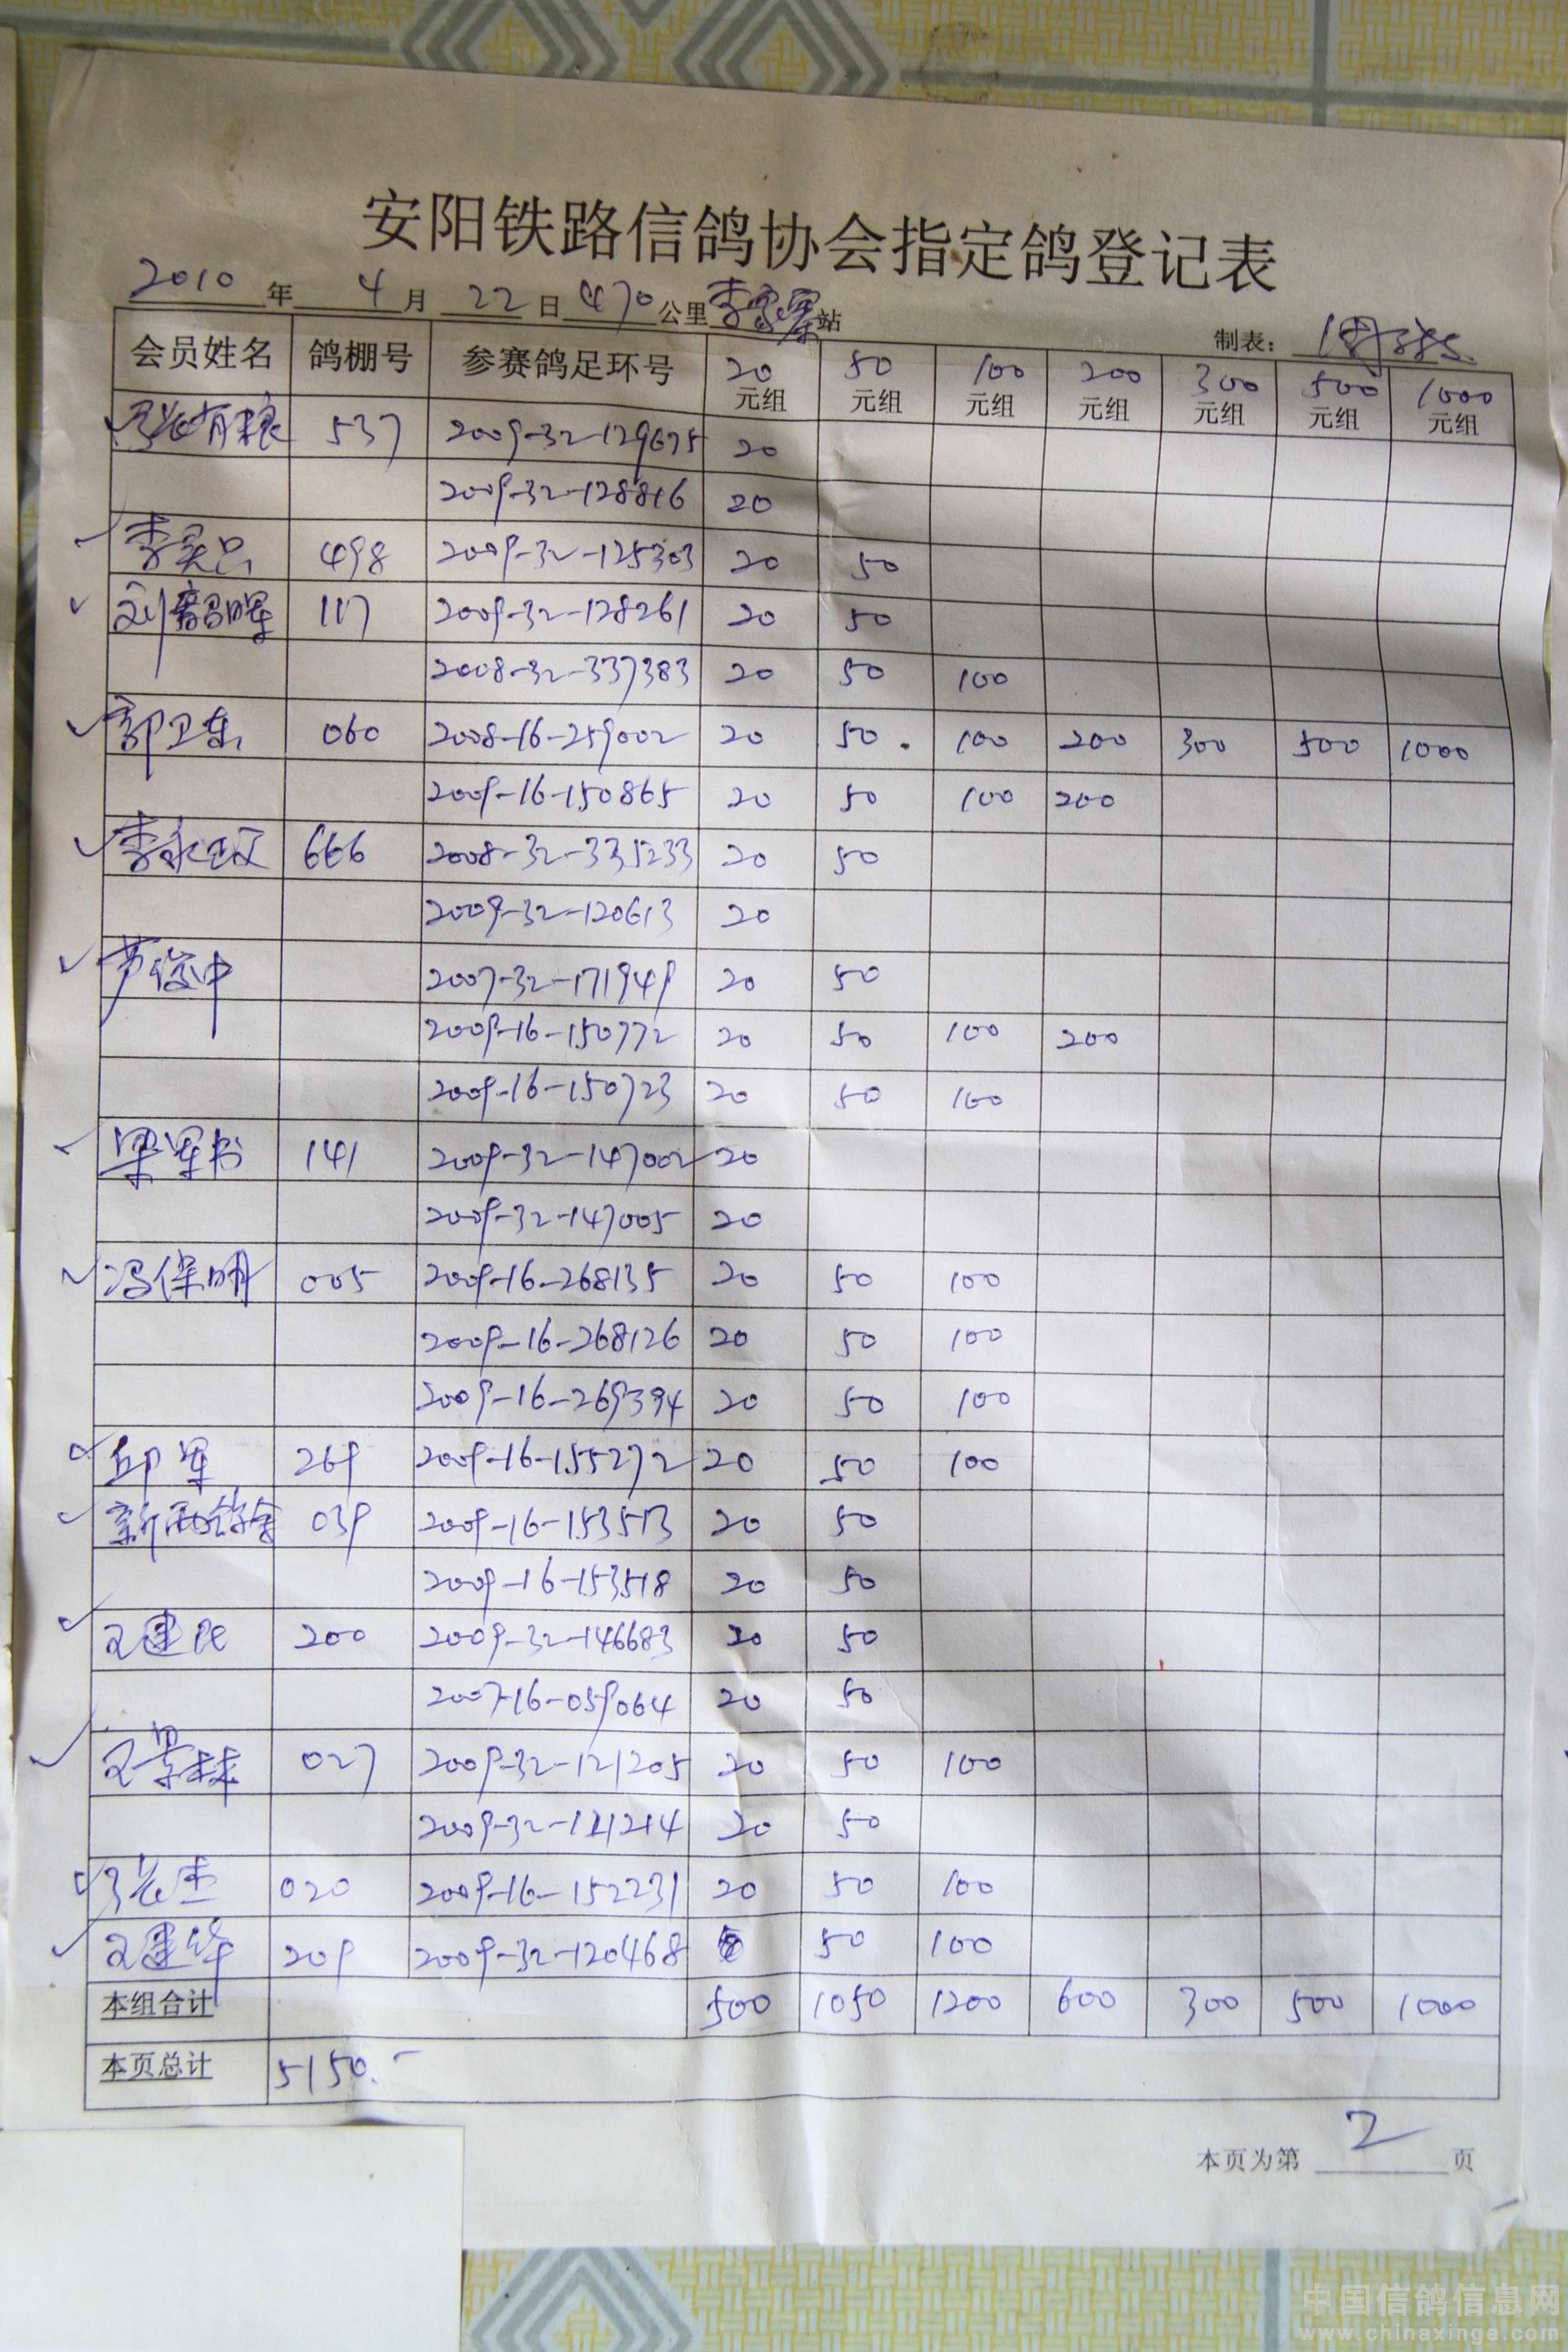 安阳铁路信鸽协会指定鸽登记表
2010年 4月 22日 470公里李家寨站
制表：
会员姓名 鸽棚号 参赛鸽足环号 20元组 50元组 100元组 200元组 300元组 500元组 1000元组
537 2009-32-129675 20
2009-32-128816 20
498 2009-32-125303 20 50
刘韶晖 117 2009-32-128261 20 50
2008-32-337383 20 50 100
郭卫东 060 2008-16-259002 20 50 100 200 300 500 1000
2009-16-150865 20 50 100 200
李永政 666 2008-32-335233 20 50
2009-32-120613 20
芦俊中 2007-32-171949 20 50
2009-16-150772 20 50 100 200
2009-16-150723 20 50 100
梁军书 141 2009-32-147002 20
2009-32-147005 20
冯保明 005 2009-16-268135 20 50 100
2009-16-268126 20 50 100
2009-16-269394 20 50 100
邱军 269 2009-16-155272 20 50 100
新雨鸽舍 039 2009-16-153513 20 50
2009-16-153518 20 50
王建民 200 2009-32-146683 20 50
2007-16-059064 20 50
王景林 027 2009-32-121205 20 50 100
2009-32-121214 20 50
020 2009-16-152231 20 50 100
王建华 209 2009-32-120468 50 100
本组合计 500 1050 1200 600 300 500 1000
本页总计 5150.-
本页为第 2 页
中国信鸽信息网
www.chinaxinge.com